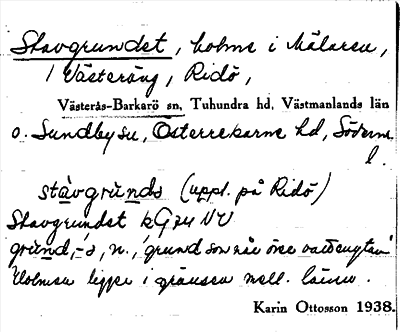 Stavgrundet, holme i Mälaren,
i Västeräng, Ridö,
Västerås-Barkarö sn, Tuhundra hd, Västmanlands län
o. Sundby sn, Österrekarne hd, Söderm.
l.
stàvgrùnds (uppl. på Ridö)
Stavgrundet kG74 NV
grund, -s, n., 'grund som når över vattenytan'
Holmen ligger i gränsen mell. länen.
Karin Ottosson 1938.